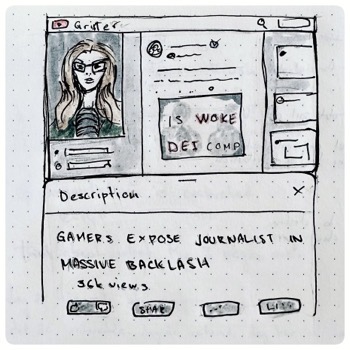 Grifter
IS WOKE
DEI COMP
Description
X
GAMERS EXPOSE JOURNALIST IN
MASSIVE BACKLASH
36k views
SHARE